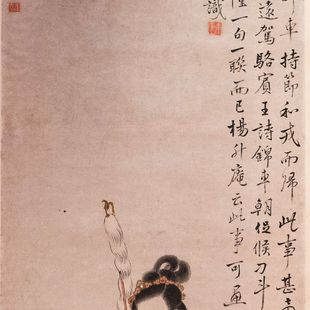 車持節和戎而歸此事甚
遠駕駱賓王詩錦車朝促候刀斗
一句一聯而已楊升庵云此事可畫
識